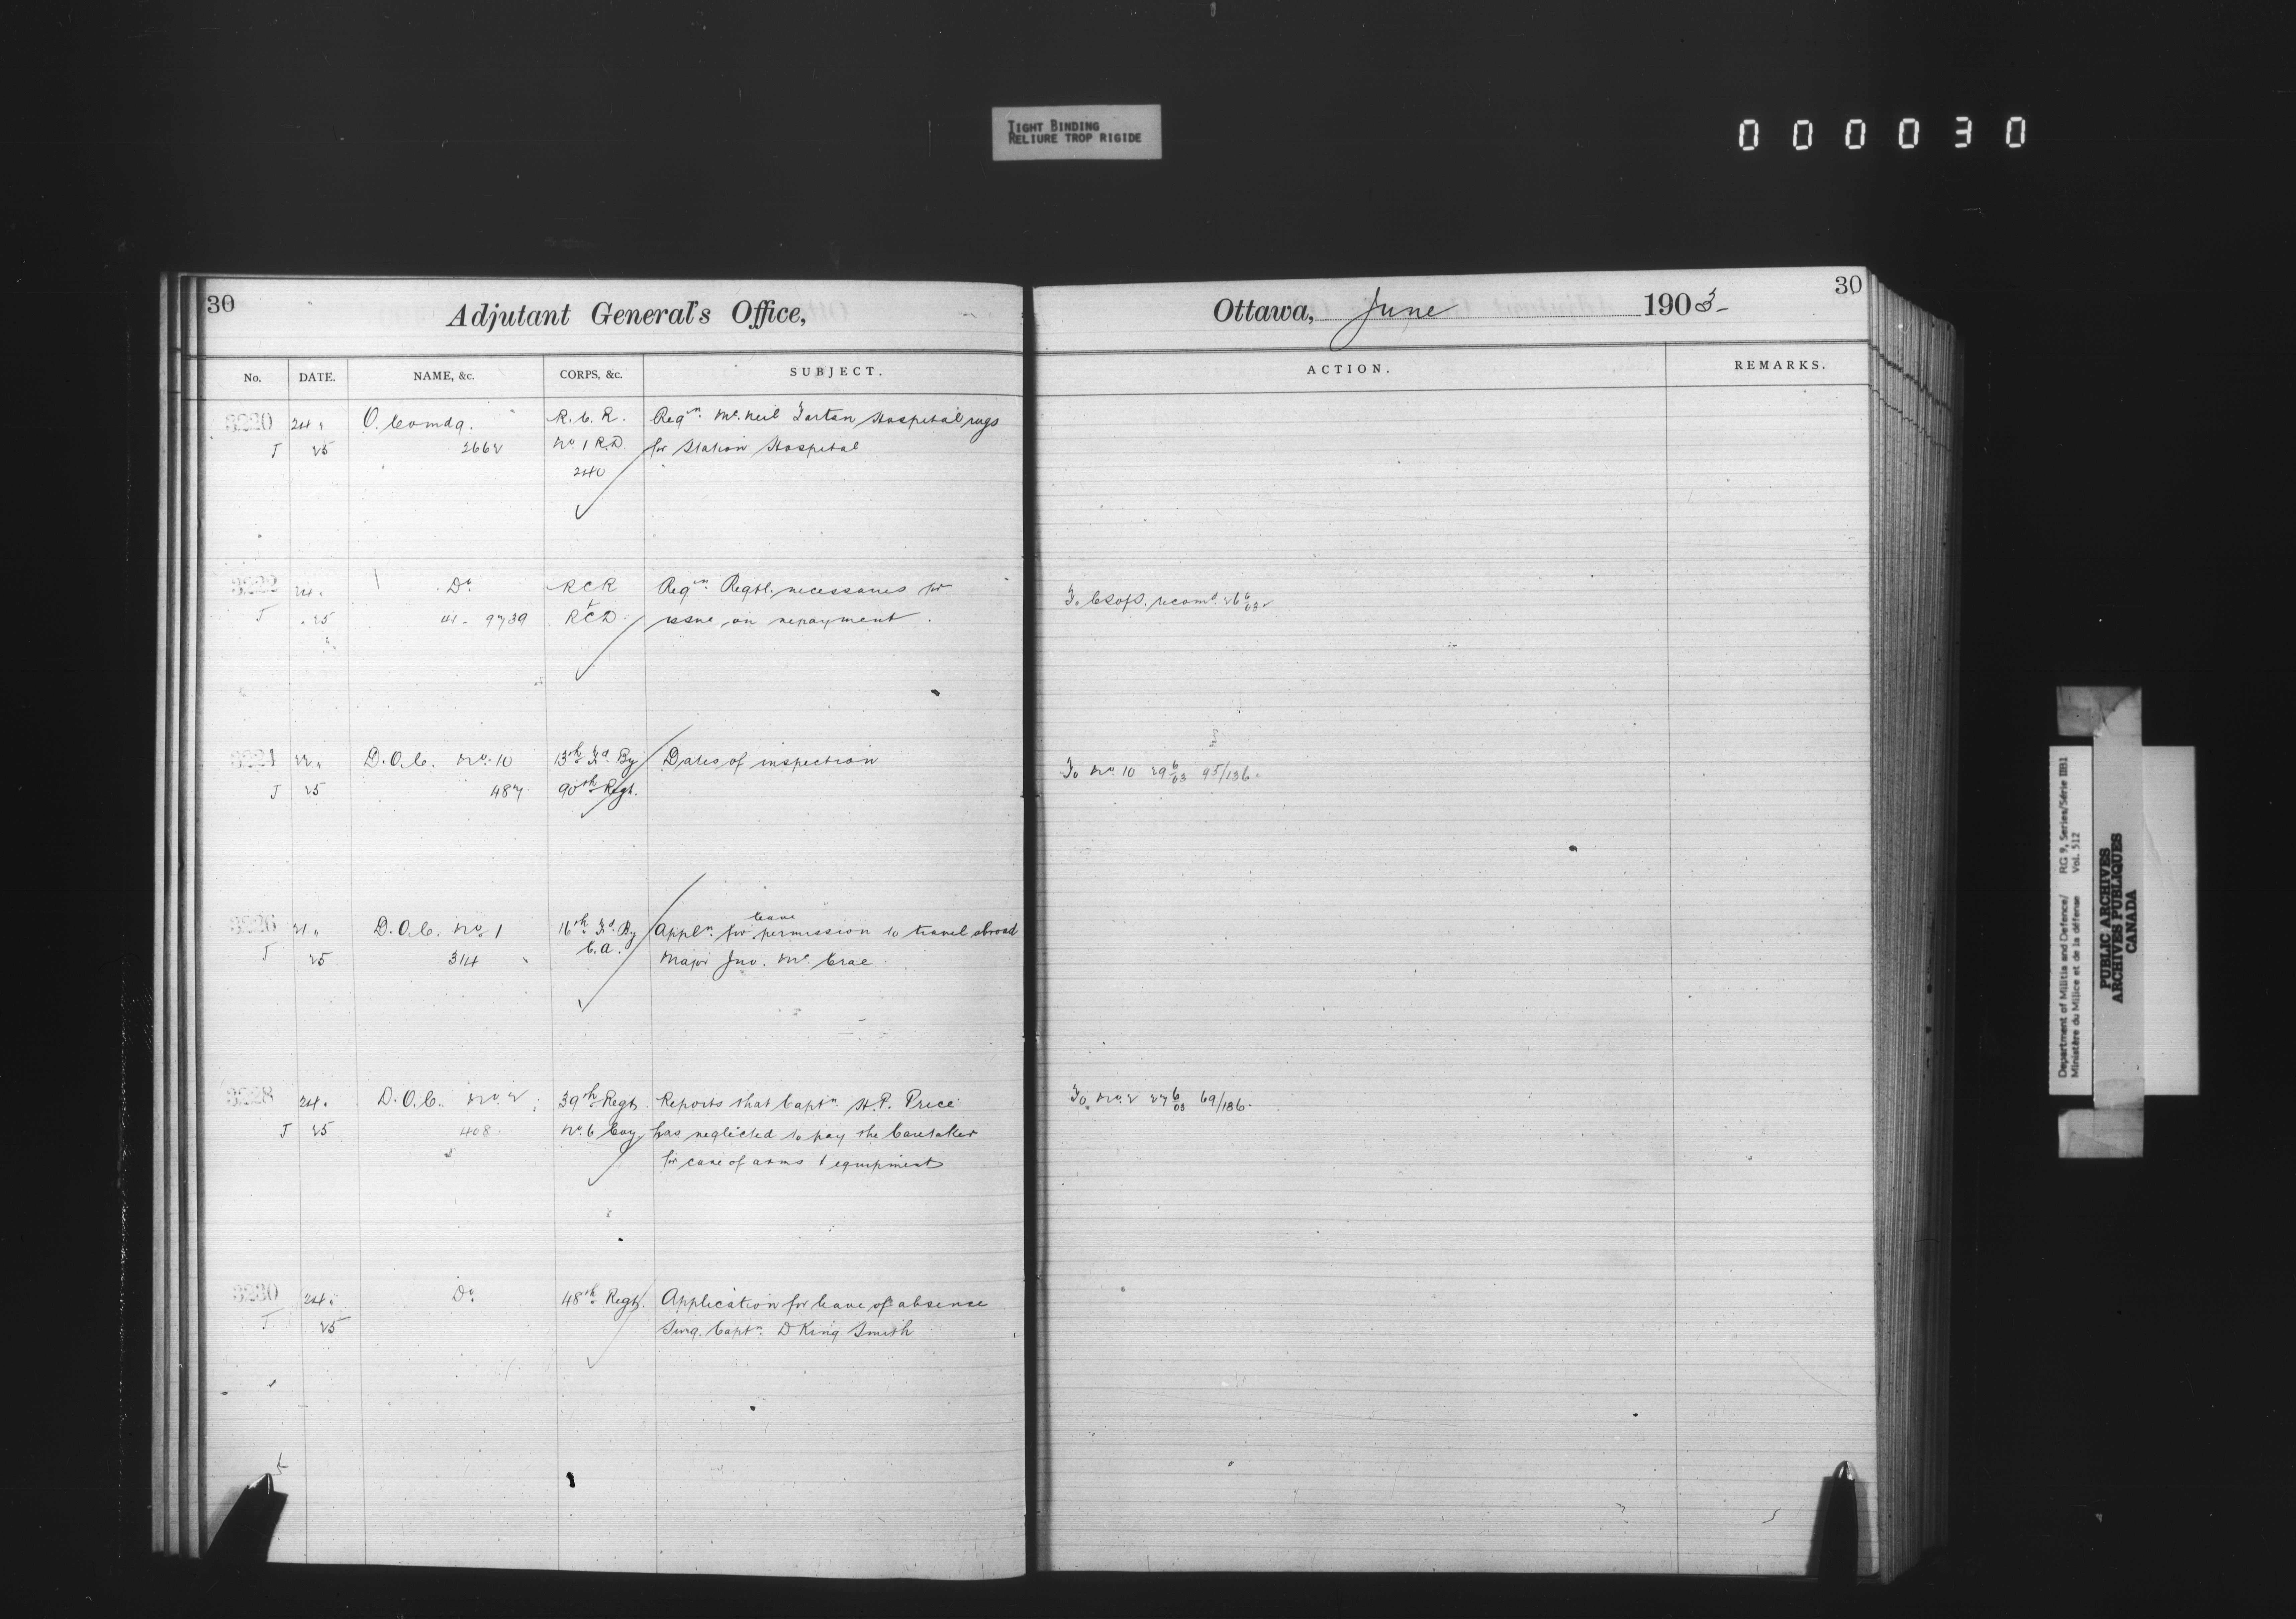 TIGHT BINDING
RELIURE TROP RIGIDE
000030
30
Adjutant General's Office,
No. DATE. NAME, &c. CORPS, &c. SUBJECT.
3220 24 " O. Comdg. R. C. R. Reqn. Mc. Neil Tartan Hospital rugs
J 25 2662 No 1 R.D. for Station Hospital
240
3222 24 " Do. RCR Reqn. Regtl. necessaries for
J 25 9739 RCD issue on repayment.
3224 22 " D.O.C. No. 10 13th Fd. By Dates of inspection
J 25 487 90th Regt.
3226 21 " D.O.C. No. 1 16th Fd. By Appln. for leave permission to travel abroad
J 25 314 C.A. Major Jno. Mc. Crae
3228 24 " D.O.C. No. 2 39th Regt. Reports that Captn. H.P. Price
J 25 408 No. 6 Coy. has neglected to pay the Caretaker
for care of arms & equipment
3230 24 " Do. 48th Regt. Application for leave of absence
J 25 Surg. Captn. D King Smith
30
Ottawa, June 1903-
ACTION. REMARKS.
To recomd. 26 6/03
To No. 10 29 6/03 95/136.
To No. 2 27 6/03 69/136.
Department of Militia and Defence/ RG 9, Series/Série IIB1
Ministère du Milice et de la défense Vol. 512
PUBLIC ARCHIVES
ARCHIVES PUBLIQUES
CANADA